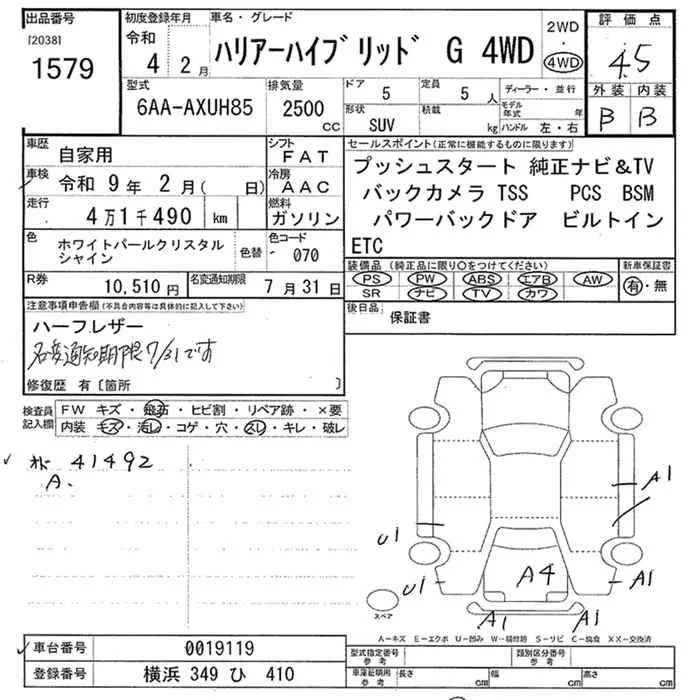 出品番号 初度登録年月 車名・グレード 2WD 評価点
[2038] 令和 ハリアーハイブリッド G 4WD ・ 4.5
1579 4 2月 4WD
型式 排気量 ドア 定員 ディーラー・並行 外装 内装
6AA-AXUH85 2500 cc 5 5人 モデル年式 年 B B
形状 積載 kg ハンドル 左・右
SUV
車歴 自家用 シフト FAT セールスポイント(正常に機能するものに限ります)
車検 令和 9年 2月( 日) 冷房 AAC プッシュスタート 純正ナビ&TV
走行 4万1千490 km 燃料 ガソリン バックカメラ TSS PCS BSM
パワーバックドア ビルトイン
ETC
色 ホワイトパールクリスタル 色替 色コード
シャイン 070
R券 10,510円 名変通知期限 7月31日 装備品(純正品に限り○をつけてください) 新車保証書
PS PW ABS エアB AW 有・無
SR ナビ TV カワ
注意事項申告欄(不具合内容等は具体的に記入して下さい) 後日品 保証書
ハーフレザー
名変通知期限7/31です
修復歴 有〔箇所 〕
検査員 FW キズ・飛石・ヒビ割・リペア跡・×要
記入欄 内装 キズ・汚レ・コゲ・穴・スレ・キレ・破レ
41492
A.
A1
U1
U1 A4 A1
スペア A1 A1
A−キズ E−エクボ U−凹み W−補修跡 S−サビ C−腐食 XX−交換済
車台番号 0019119 型式指定番号 参考 類別区分番号 参考
登録番号 横浜 349 ひ 410 車庫証明用 参考 長さ cm 幅 cm 高さ cm